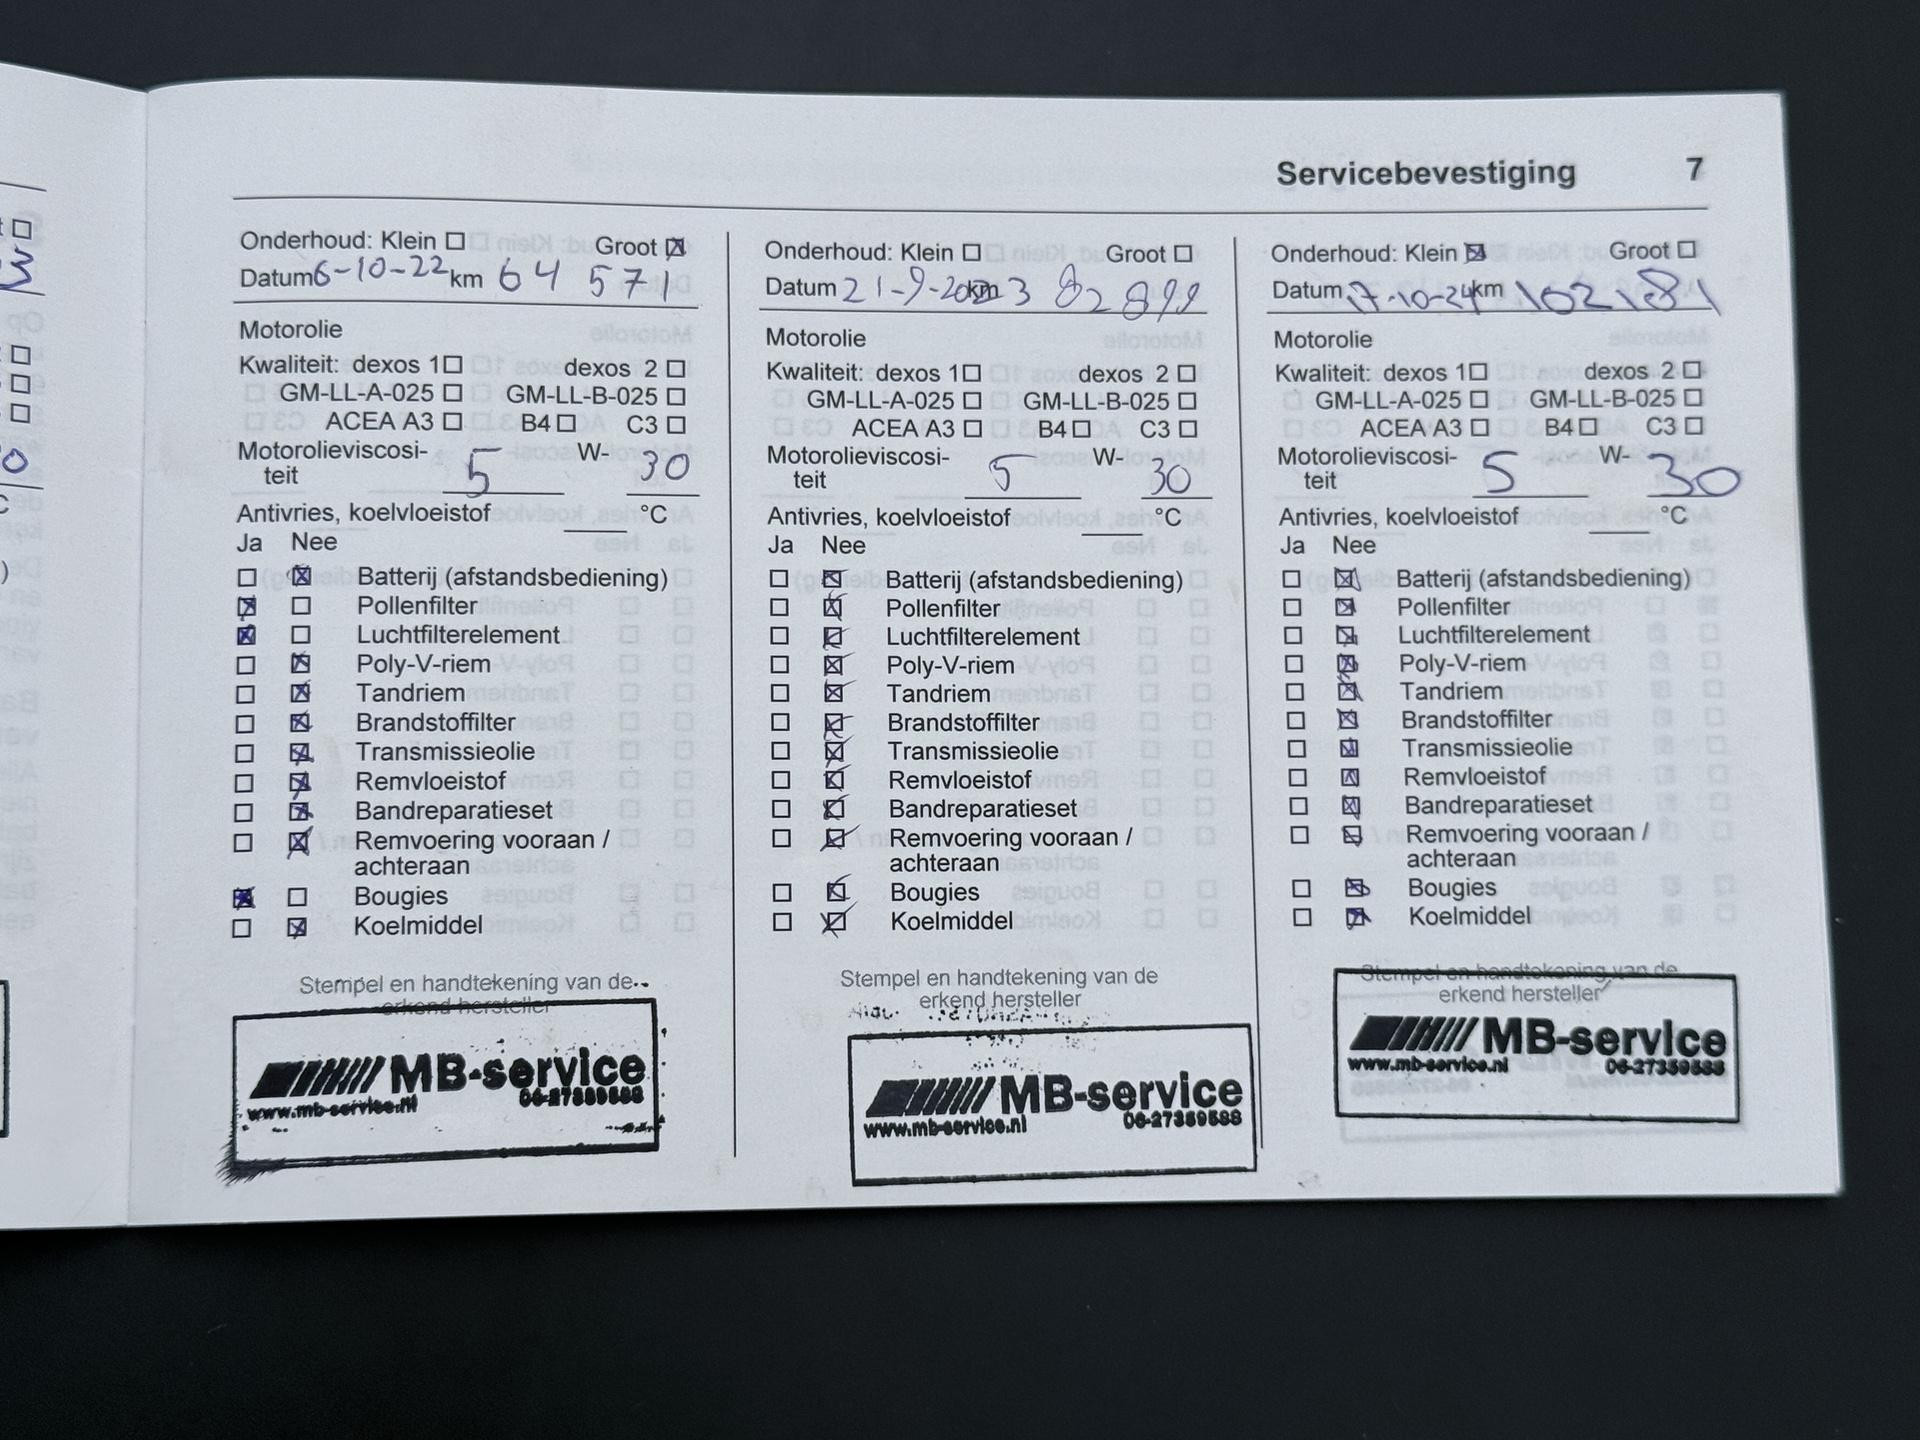 Servicebevestiging 7
Onderhoud: Klein Groot
Datum 6-10-22 km 64 571
Motorolie
Kwaliteit: dexos 1 dexos 2
GM-LL-A-025 GM-LL-B-025
ACEA A3 B4 C3
Motorolieviscosi- W-
teit 5 30
Antivries, koelvloeistof °C
Ja Nee
Batterij (afstandsbediening)
Pollenfilter
Luchtfilterelement
Poly-V-riem
Tandriem
Brandstoffilter
Transmissieolie
Remvloeistof
Bandreparatieset
Remvoering vooraan /
achteraan
Bougies
Koelmiddel
Stempel en handtekening van de
erkend hersteller
MB-service
www.mb-service.nl 06-27359588
Onderhoud: Klein Groot
Datum 21-9-2023 km 82 899
Motorolie
Kwaliteit: dexos 1 dexos 2
GM-LL-A-025 GM-LL-B-025
ACEA A3 B4 C3
Motorolieviscosi- W-
teit 5 30
Antivries, koelvloeistof °C
Ja Nee
Batterij (afstandsbediening)
Pollenfilter
Luchtfilterelement
Poly-V-riem
Tandriem
Brandstoffilter
Transmissieolie
Remvloeistof
Bandreparatieset
Remvoering vooraan /
achteraan
Bougies
Koelmiddel
Stempel en handtekening van de
erkend hersteller
MB-service
www.mb-service.nl 06-27359588
Onderhoud: Klein Groot
Datum 17-10-24 km 102181
Motorolie
Kwaliteit: dexos 1 dexos 2
GM-LL-A-025 GM-LL-B-025
ACEA A3 B4 C3
Motorolieviscosi- W-
teit 5 30
Antivries, koelvloeistof °C
Ja Nee
Batterij (afstandsbediening)
Pollenfilter
Luchtfilterelement
Poly-V-riem
Tandriem
Brandstoffilter
Transmissieolie
Remvloeistof
Bandreparatieset
Remvoering vooraan /
achteraan
Bougies
Koelmiddel
Stempel en handtekening van de
erkend hersteller
MB-service
www.mb-service.nl 06-27359588